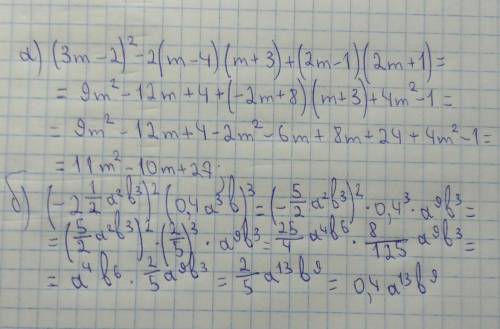 а) (3m-2)²-2(m-4)(m+3)+(2m-1)(2m+1)=
= 9m²-12m+4+(-2m+8)(m+3)+4m²-1=
= 9m²-12m+4-2m²-6m+8m+24+4m²-1=
= 11m²-10m+27;
б) (-2 1/2 a²b³)²(0,4a³b)³=(-5/2 a²b³)²·0,4³·a⁹b³=
=(5/2 a²b³)²·(2/5)³·a⁹b³=25/4 a⁴b⁶·8/125 a⁹b³=
= a⁴b⁶·2/5 a⁹b³=2/5 a¹³b⁹=0,4a¹³b⁹